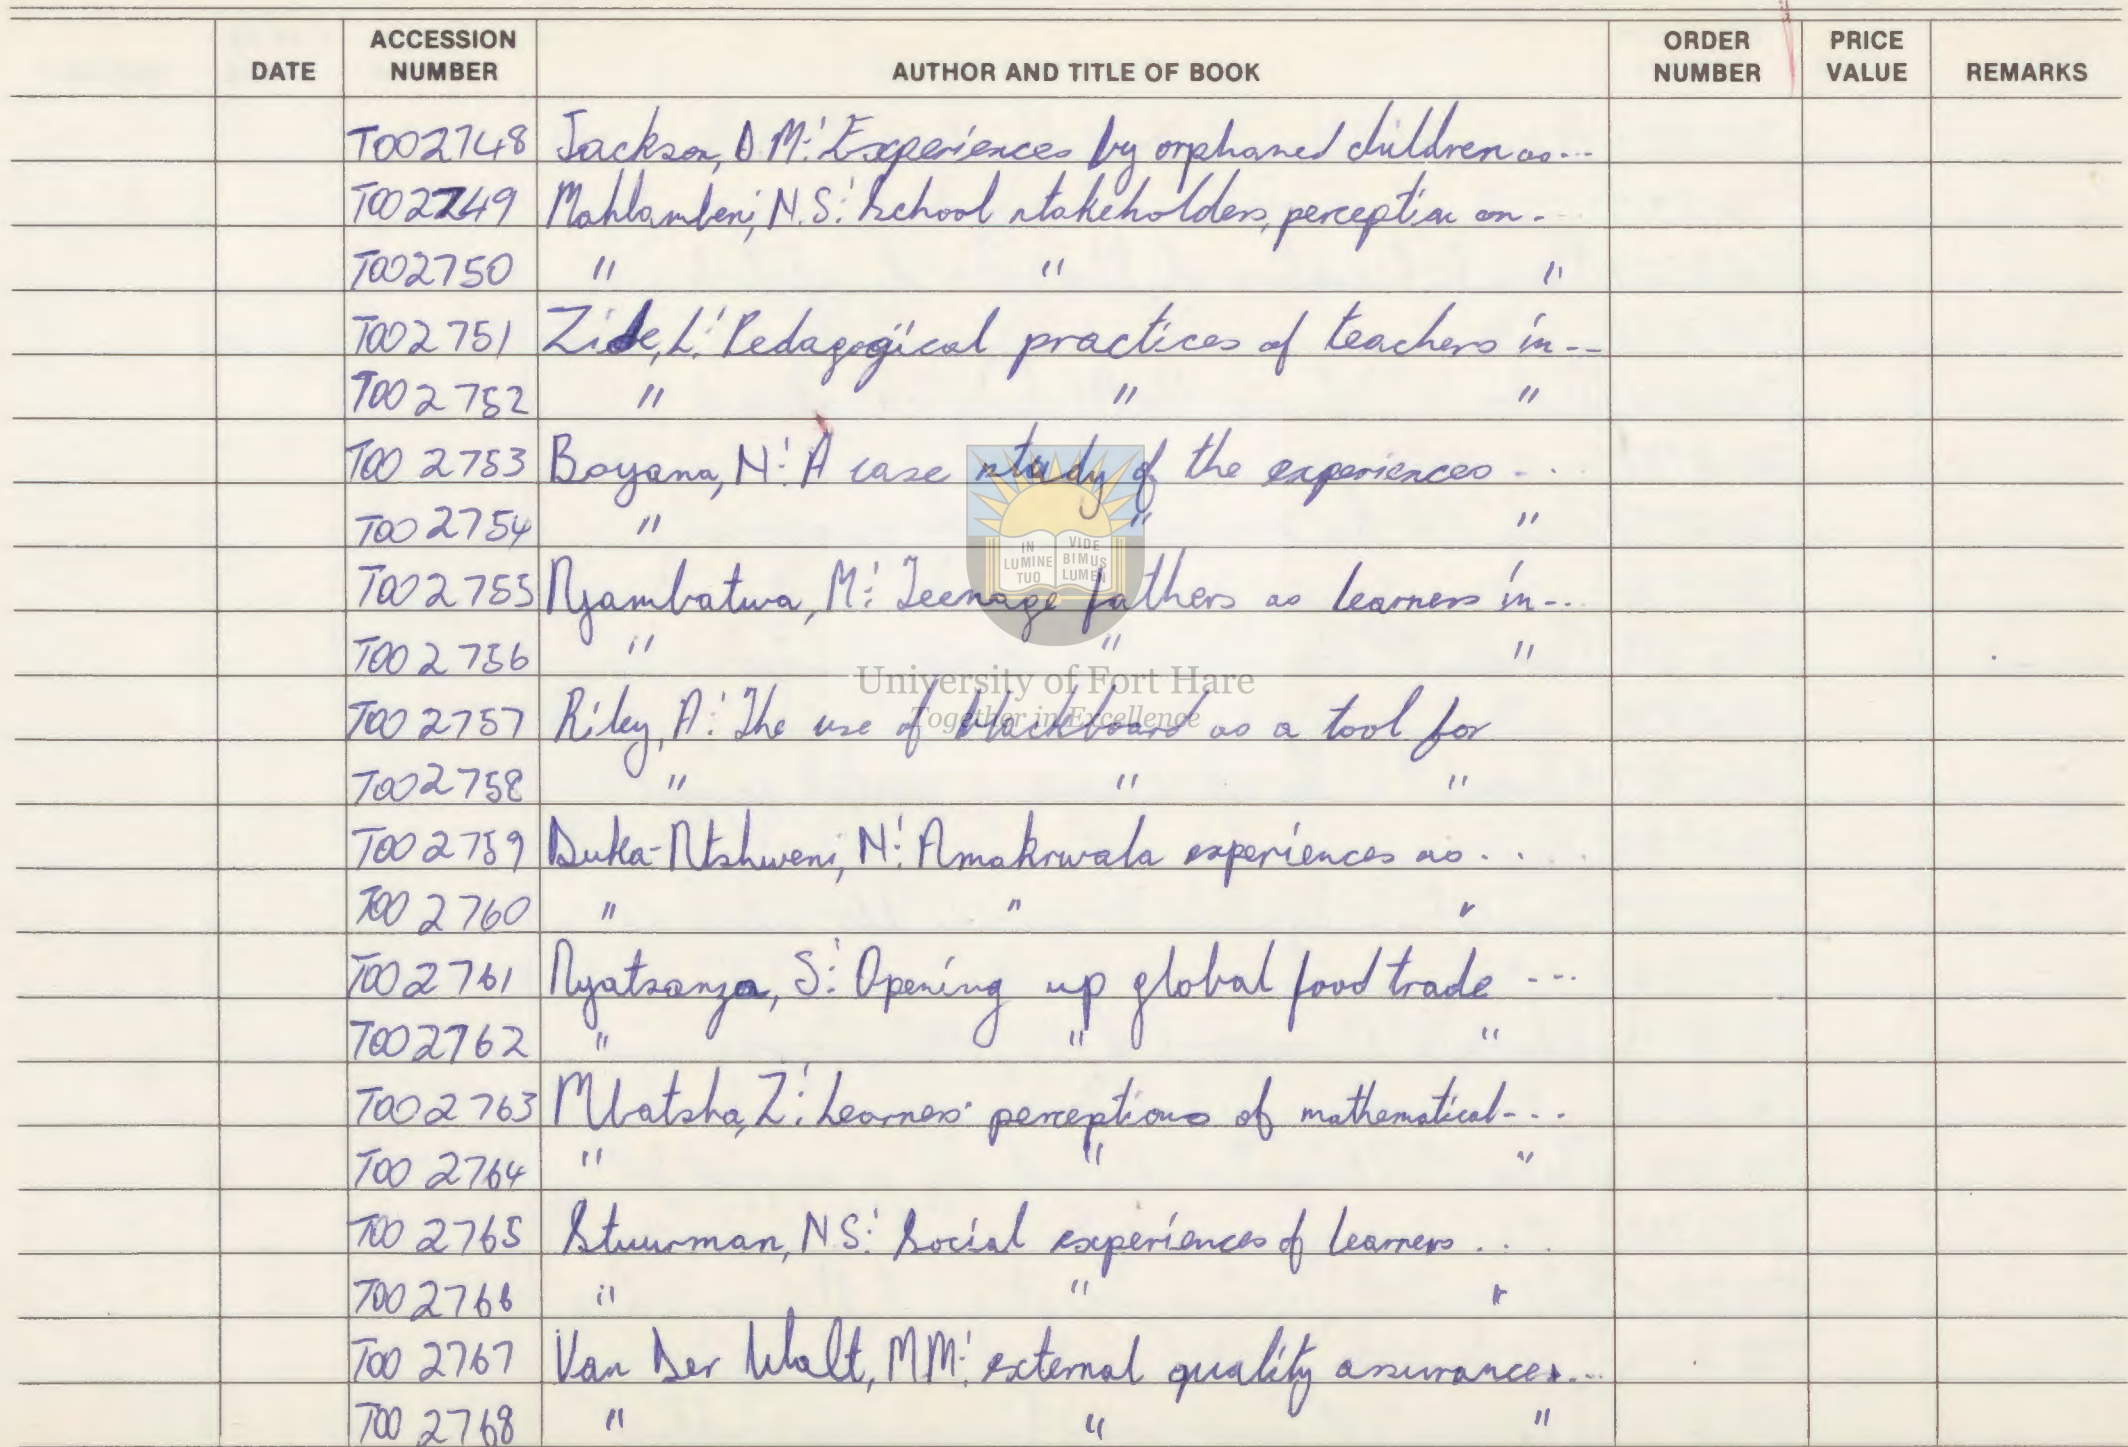 DATE ACCESSION NUMBER AUTHOR AND TITLE OF BOOK ORDER NUMBER PRICE VALUE REMARKS
T002748 Jackson, D.M: Experiences by orphaned children as...
T002749 Mahlambeni, N.S: School stakeholders, perception on..
T002750 " " "
T002751 Zide, L: Pedagogical practices of teachers in--
T002752 " " "
T002753 Boyana, N: A case study of the experiences ...
T002754 " " "
T002755 Nyambatwa, M: Teenage fathers as learners in...
T002756 " " "
T002757 Riley, A: The use of blackboard as a tool for
T002758 " " "
T002759 Duka-Ntshweni, N: Amakrwala experiences as...
T002760 " " "
T002761 Nyatsanza, S: Opening up global food trade ---
T002762 " " "
T002763 Mbatsha, Z: Learners' perceptions of mathematical---
T002764 " " "
T002765 Stuurman, N.S: Social experiences of learners ...
T002766 " " "
T002767 Van Der Walt, MM: external quality assurances...
T002768 " " "
IN LUMINE TUO VIDE BIMUS LUMEN
University of Fort Hare
Together in Excellence